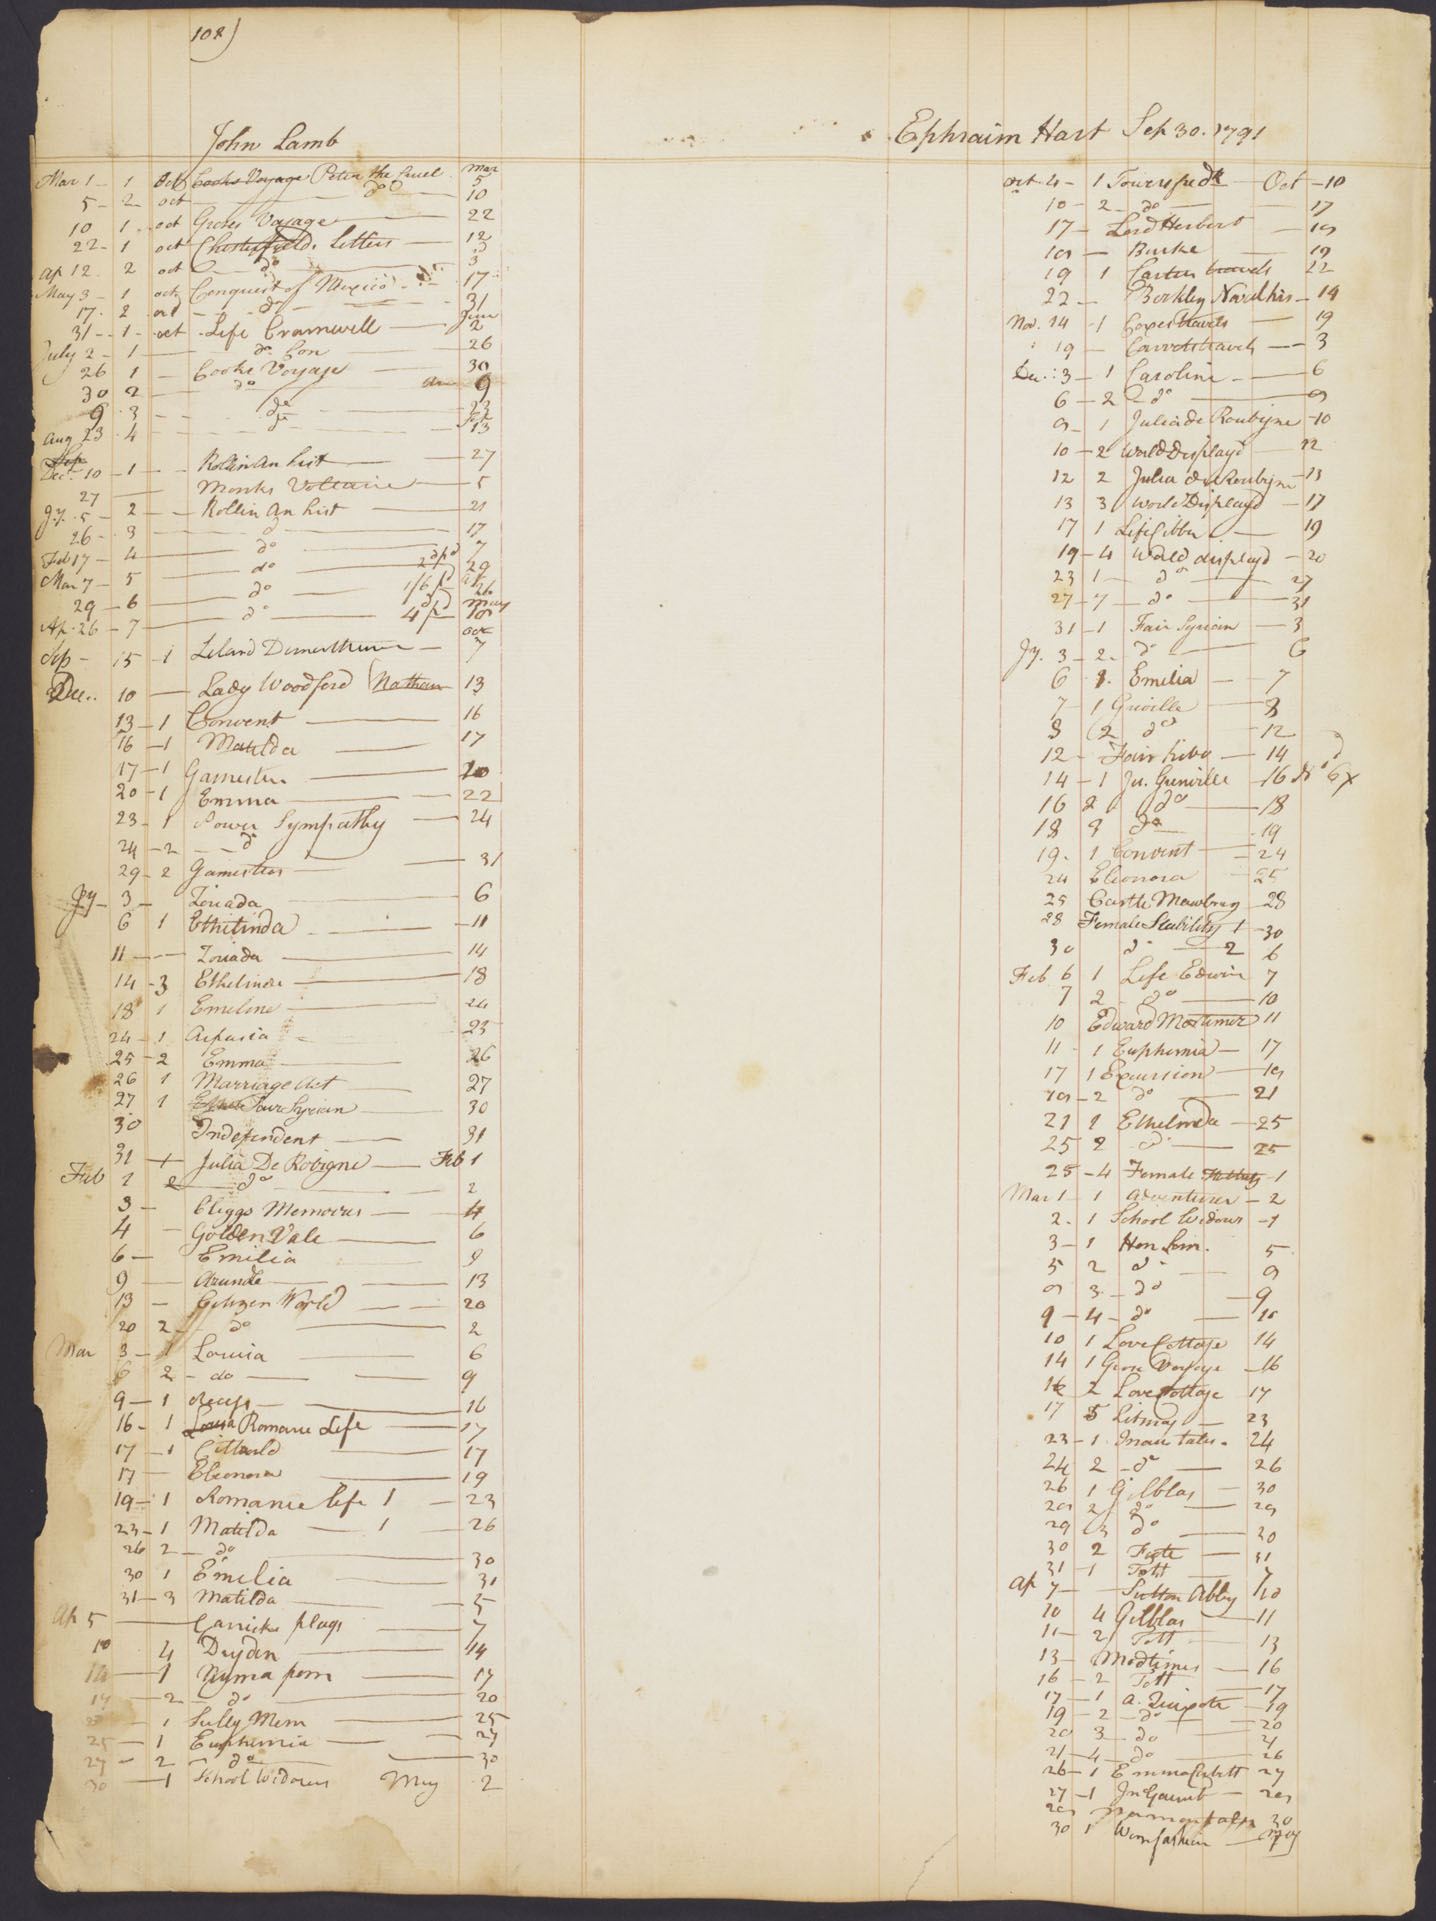 108)
John Lamb
Mar 1 - 1 Oct Cooks Voyage Peter the Cruel Mar 5
5 - 2 oct do 10
10 1 oct Groses Voyage 22
22 - 1 oct Chesterfields Letters 12
Ap 12 2 oct do 3
May 3 - 1 oct Conquest of Mexico 17
17 - 2 oct do 31
31 - 1 - oct Life Cramwell June 2
July 2 - 1 do Con 26
26 1 - Cooks Voyage 30
30 2 do 9
9 3 do 23
Aug 23 4 do 13
Sep
Dec 10 - 1 Rollin An hist 27
27 Monks Voltaire 5
Jy 5 - 2 Rollin An hist 21
26 - 3 do 17
Feb 17 - 4 do 7
Mar 7 - 5 do 29
29 - 6 do 1/6 pd 26
Ap 26 - 7 do 4 pd May 10
Sep - 15 - 1 Leland Demosthenes Oct 7
Dec 10 Lady Woodford Nathan 13
13 - 1 Convent 16
16 - 1 Matilda 17
17 - 1 Gamester 20
20 - 1 Emma 22
23 - 1 Power Sympathy 24
24 - 2 do
29 - 2 Gamesters 31
Jy - 3 - Zoriada 6
6 1 Ethelinda 11
11 Zoriada 14
14 - 3 Ethelinde 18
18 1 Emeline 24
24 - 1 Aspasia 25
25 - 2 Emma 26
26 1 Marriage Act 27
27 1 Fair Syrian 30
30 Independent 31
31 - 1 Julia De Robigne Feb 1
Feb 1 2 do 2
3 - Cleggs Memoirs 4
4 - Golden Vale 6
6 - Emilia 9
9 Arundle 13
13 - Citizen World 20
20 2 do 2
Mar 3 - 1 Louisa 6
6 2 - do 9
9 - 1 Recess 16
16 - 1 Louisa Romance Life 17
17 - 1 17
17 Eleonora 19
19 - 1 Romance life 1 - 23
23 - 1 Matilda 1 - 26
26 2 - do 30
30 1 Emilia 31
31 - 3 Matilda 5
Ap 5 Garricks plays 7
10 4 Dryden 14
14 - 1 Numa pom 17
17 - 2 - do 20
20 - 1 Sully Mem 25
25 - 1 Euphemia 27
27 - 2 do 30
30 - 1 School Widows May 2
Ephraim Hart Sep 30. 1791
Oct 4 - 1 Towers fredk Oct - 10
10 - 2 - do 17
17 - Lord Herbert 19
19 - Burke 19
19 1 Carters travels 22
22 - Berkley Nard his - 14
Nov. 14 - 1 Coxes travels 19
19 - Carvers travels 3
Dec. 3 - 1 Caroline 6
6 - 2 do 9
9 - 1 Julia de Roubigne - 10
10 - 2 World Displayd 12
12 2 Julia de Roubigne - 13
13 3 World Displayd - 17
17 1 Life Cibber - 19
19 - 4 World displayd - 20
23 1 - do 27
27 - 7 - do 31
31 - 1 Fair Syrian - 3
Jy. 3 - 2 do 6
6 1 Emilia 7
7 1 Greville 8
8 2 do 12
12 - Fair hibe 14
14 - 1 Ju. Grenville - 16
16 2 do 18
18 3 do 19
19 - 1 Convent - 24
24 Eleonora 25
25 Castle Mowbray - 28
28 Female Stability 1 - 30
30 do 2 6
Feb 6 1 Life Edwin 7
7 2 do 10
10 Edward Mortimer 11
11 1 Euphemia - 17
17 1 Excursion - 19
19 - 2 do 21
21 1 Ethelinda - 25
25 2 do 25
25 - 4 Female 1
Mar 1 - 1 Adventurer - 2
2 - 1 School Widows - 1
3 - 1 5
5 2 do 9
9 3 - do - 9
9 - 4 - do 10
10 1 Love Cottage 14
14 1 Grose Voyage - 16
16 2 Love Cottage 17
17 5 23
23 - 1 tales 24
24 2 - do 26
26 1 Gilblas - 30
29 2 do 29
29 3 do 30
30 2 Foote 31
31 - 1 Tott 7
Ap 7 - Sutton Abby 10
10 4 Gilblas 11
11 - 2 Tott 13
13 - Mod times 16
16 - 2 Tott 17
17 - 1 19
19 - 2 - do 20
20 3 - do 21
21 - 4 - do 26
26 - 1 Emma Corbett 27
27 - 1 Jn Gaunt - 29
29 30
30 1 May